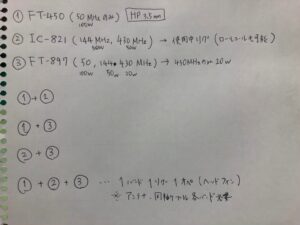 ① FT-450 (50 MHz のみ) HP 3.5mm
100W
② IC-821 (144 MHz, 430 MHz) → 使用中リグ (ローカルコールも可能)
50W
③ FT-897 (50, 144, 430 MHz) → 430MHzのみ 20W
100W 50W 20W
①+②
①+③
②+③
①+②+③ … 1バンド 1リグ 1オペ (ヘッドフォン)
※ アンテナ、同軸ケーブル 各バンド